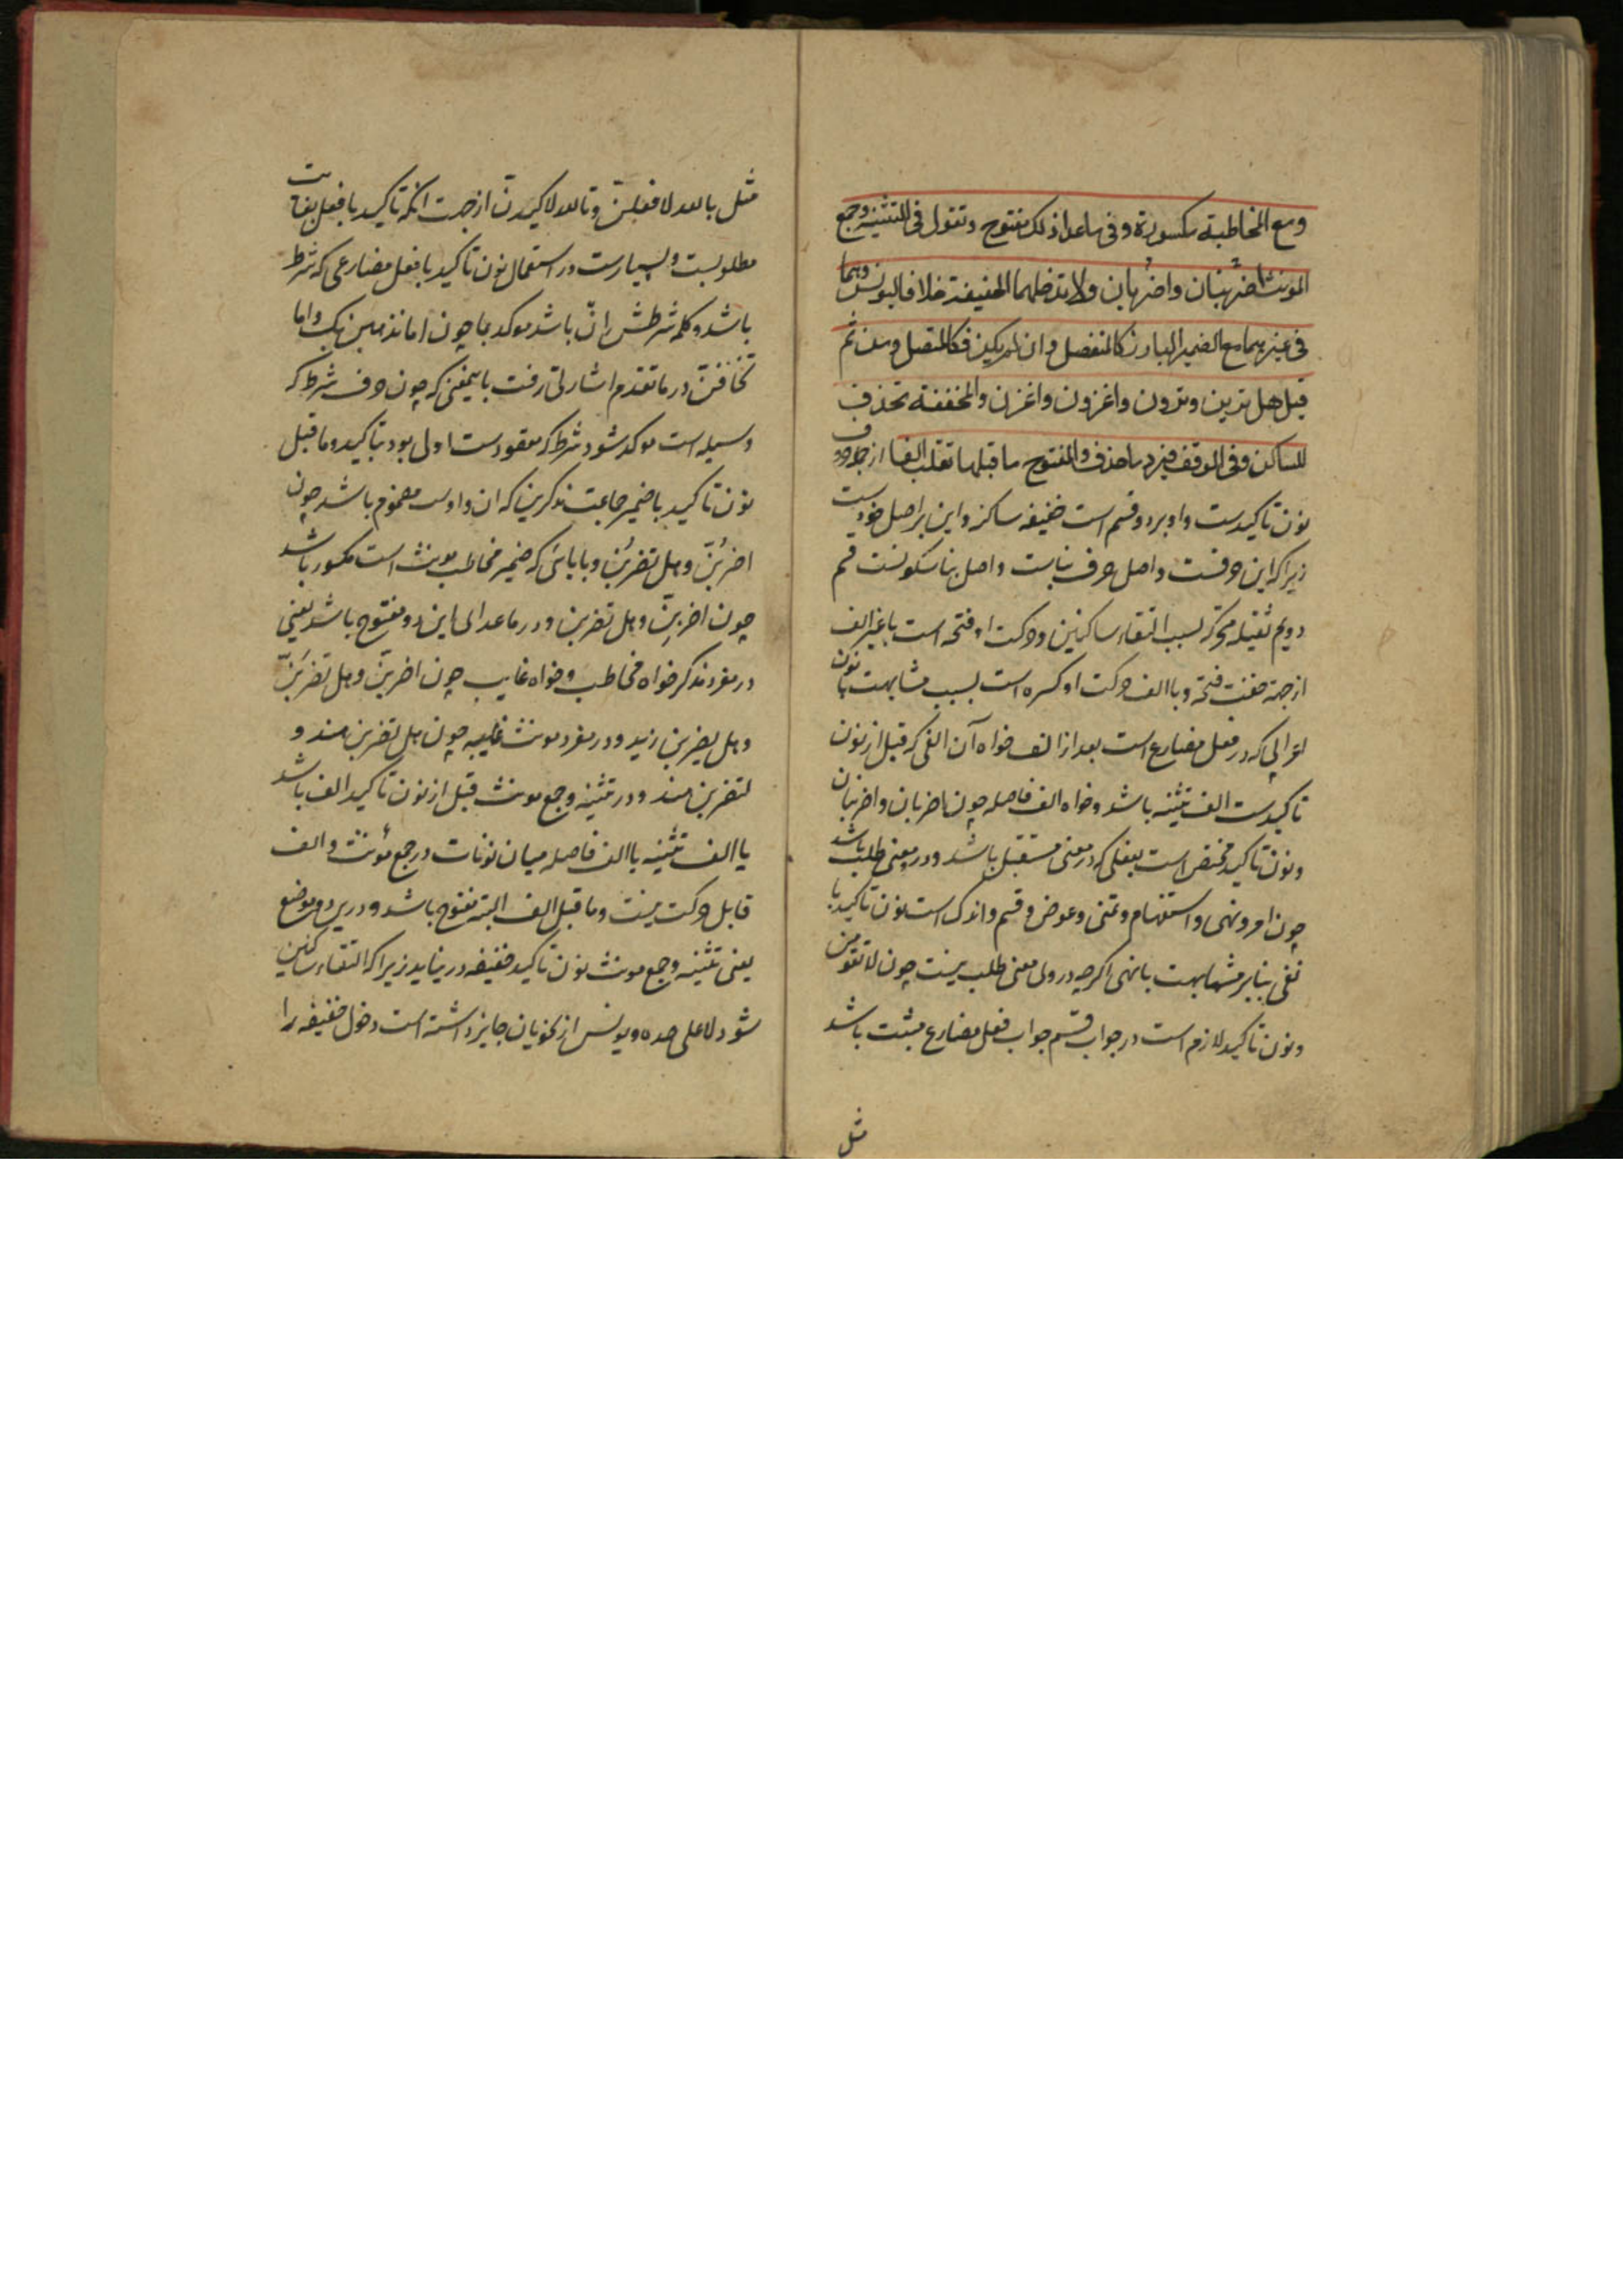 ومع المخاطبة مكسورة وفى ماعدا ذلك مفتوح وتقول فى التثنية وجمع
المونث اضربنان واضربان ولا تدخلهما الخفيفة خلافا ليونس وهما
فى غيرهما مع الضمير البارز كالمنفصل وان لم يكن فكالمتصل ومن ثم
قيل هل ترين وترون واغزون واغزن والمخففة تحذف
للساكن وفى الوقف فيرد ما حذف والمفتوح ما قبلها تقلب الفا از حروف
نون تاكيدست واو بر دو قسم است خفيفه ساكنه واين بر اصل خودست
زيرا كه اين حرفست واصل حرف بناست واصل بنا سكونست قسم
دويم ثقيله متحركه بسبب التقاء ساكنين وحركت او فتحه است با غير الف
از جهة خفت فتحه وبا الف حركت او كسره است بسبب مشابهت با نون
اعرابى كه در فعل مضارع است بعد از الف خواه آن الفى كه قبل از نون
تاكيدست الف تثنيه باشد وخواه الف فاصله چون اضربان واضربنان
ونون تاكيد مختص است بفعلى كه در معنى مستقبل باشد ودر معنى طلب باشد
چون امر ونهى واستفهام وتمنى وعرض وقسم واندك است نون تاكيد با
نفى بنابر مشابهت با نهى اگرچه در وى معنى طلب نيست چون لا تقومن
ونون تاكيد لازم است در جواب قسم جواب فعل مضارع مثبت باشد
مثل
مثل بالله لافعلن وتالله لاكيدن از جهت انكه تاكيد با فعل بغايت
مطلوبست وبسيارست در استعمال نون تاكيد با فعل مضارعى كه شرط
باشد وكلمه شرطش ان باشد موكد بما چون اما نذهبن بك واما
تخافن در ما تقدم اشارتى رفت باينمعنى كه چون حرف شرط كه
وسيله است موكد شود شرط كه مقصودست اولى بود بتاكيد وما قبل
نون تاكيد با ضمير جماعت مذكرين كه ان واوست مضموم باشد چون
اضربن وهل تضربن وبا يائى كه ضمير مخاطب مونث است مكسور باشد
چون اضربن وهل تضربن ودر ماعداى اين دو مفتوح باشد يعنى
در مفرد مذكر خواه مخاطب وخواه غايب چون اضربن وهل تضربن
وهل يضربن زيد ودر مفرد مونث غايبه چون هل تضربن هند و
لتضربن هند ودر تثنيه وجمع مونث قبل از نون تاكيد الف باشد
يا الف تثنيه يا الف فاصله ميان نونات در جمع مؤنث والف
قابل حركت نيست وما قبل الف البته مفتوح باشد ودرين دو موضع
يعنى تثنيه وجمع مونث نون تاكيد خفيفه در نيايد زيرا كه التقاء ساكنين
شود لا على حده ويونس از نحويان جايز داشته است دخول خفيفه را